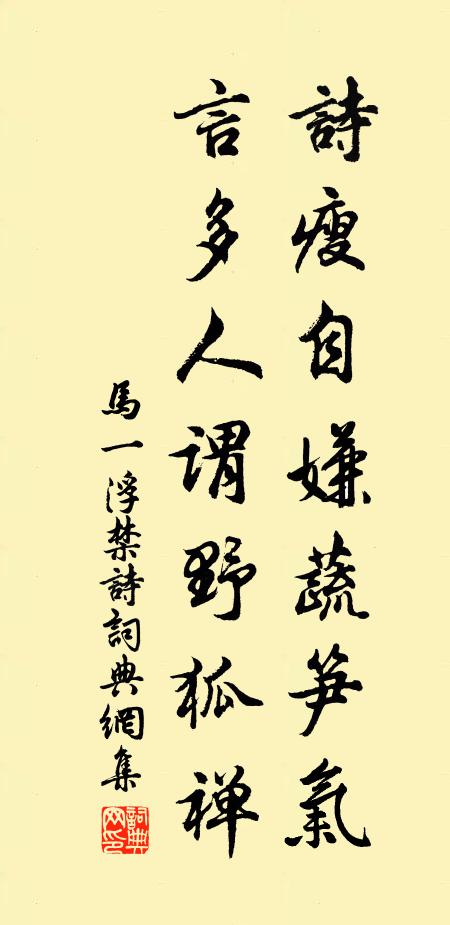 詩瘦自嫌蔬笋氣
言多人謂野狐禅
馬一浮禁詩詞典網集
詞典網印